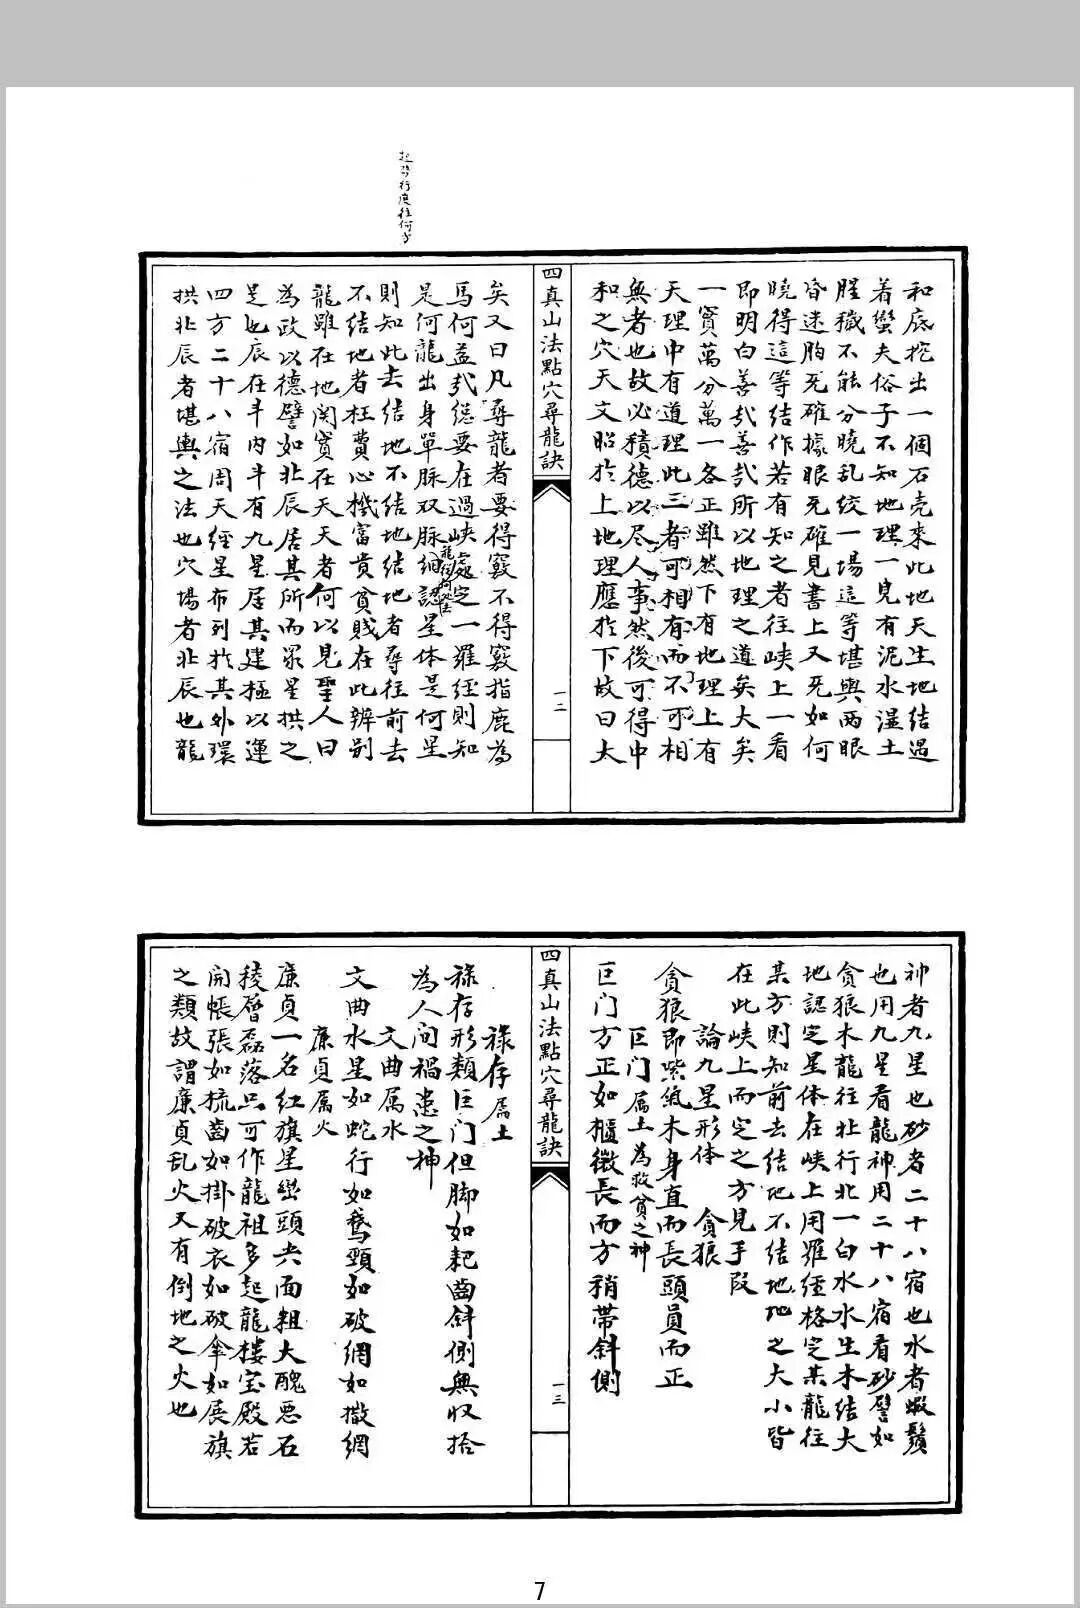 和底挖出一個石壳來此地天生地結過
着蠻夫俗子不知地理一見有泥水濕土
腥穢不能分曉乱绞一場這等堪輿兩眼
昏迷胸死確據眼死確見書上又死如何
曉得這等結作若有知之者往峽上一看
即明白善哉善哉所以地理之道矣大矣
一寳萬分萬一各正雖然下有地理上有
天理中有道理此三者可相有而不可相
無者也故必積德以尽人事然後可得中
和之穴天文昭於上地理應於下故曰太
四真山法點穴尋龍訣
一二
矣又曰凡尋龍者要得竅不得竅指鹿為
馬何益哉總要在過峽處定一羅經則知
是何龍出身單脉双脉細認星体是何星
則知此去結地不結地結地者尋往前去
不結地者枉費心機富貴貧賤在此辨别
龍雖在地関寳在天天者何以見聖人曰
為政以德譬如北辰居其所而眾星拱之
是也辰在斗内斗有九星居其建極以運
四方二十八宿周天經星布列於其外環
拱北辰者堪輿之法也穴場者北辰也龍
神者九星也砂者二十八宿也水者蝦鬚
也用九星看龍神用二十八宿看砂譬如
貪狼木龍往北行北一白水水生木結大
地認定星体在峽上用羅經格定某龍往
某方則知前去結地不結地地之大小皆
在此峽上而定之方見手段
論九星形体 貪狼
貪狼即紫氣木身直而長頭員而正
巨门属土為救貧之神
巨门方正如櫃微長而方稍帶斜側
四真山法點穴尋龍訣
一三
祿存属土
祿存形類巨门但脚如耙齒斜側無収拾
為人间禍患之神
文曲属水
文曲水星如蛇行如鵞頸如破網如撒網
廉貞属火
廉貞一名红旗星巒頭尖面粗大醜恶石
稜層磊落只可作龍祖多起龍楼宝殿若
開帳張如梳齒如掛破衣如破傘如展旗
之類故謂廉貞乱火天有倒地之火也
7